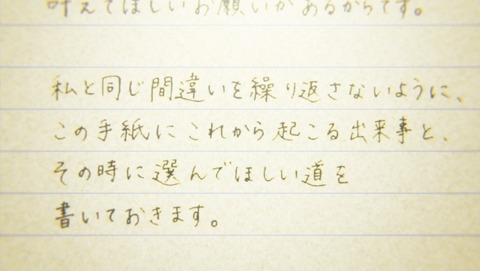 叶えてほしいお願いがあるからです。
私と同じ間違いを繰り返さないように、
この手紙にこれから起こる出来事と、
その時に選んでほしい道を
書いておきます。